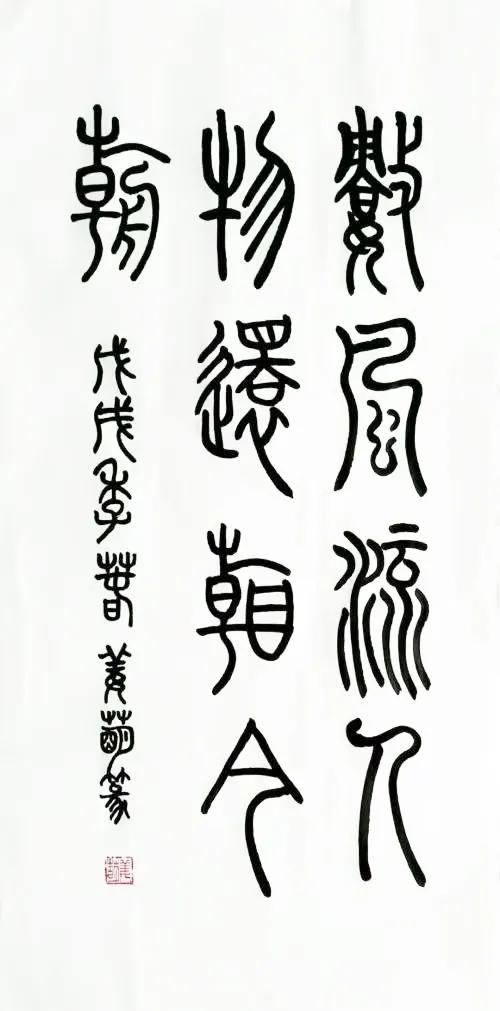 數風流人
物還看今
朝
戊戌季春 姜萌篆